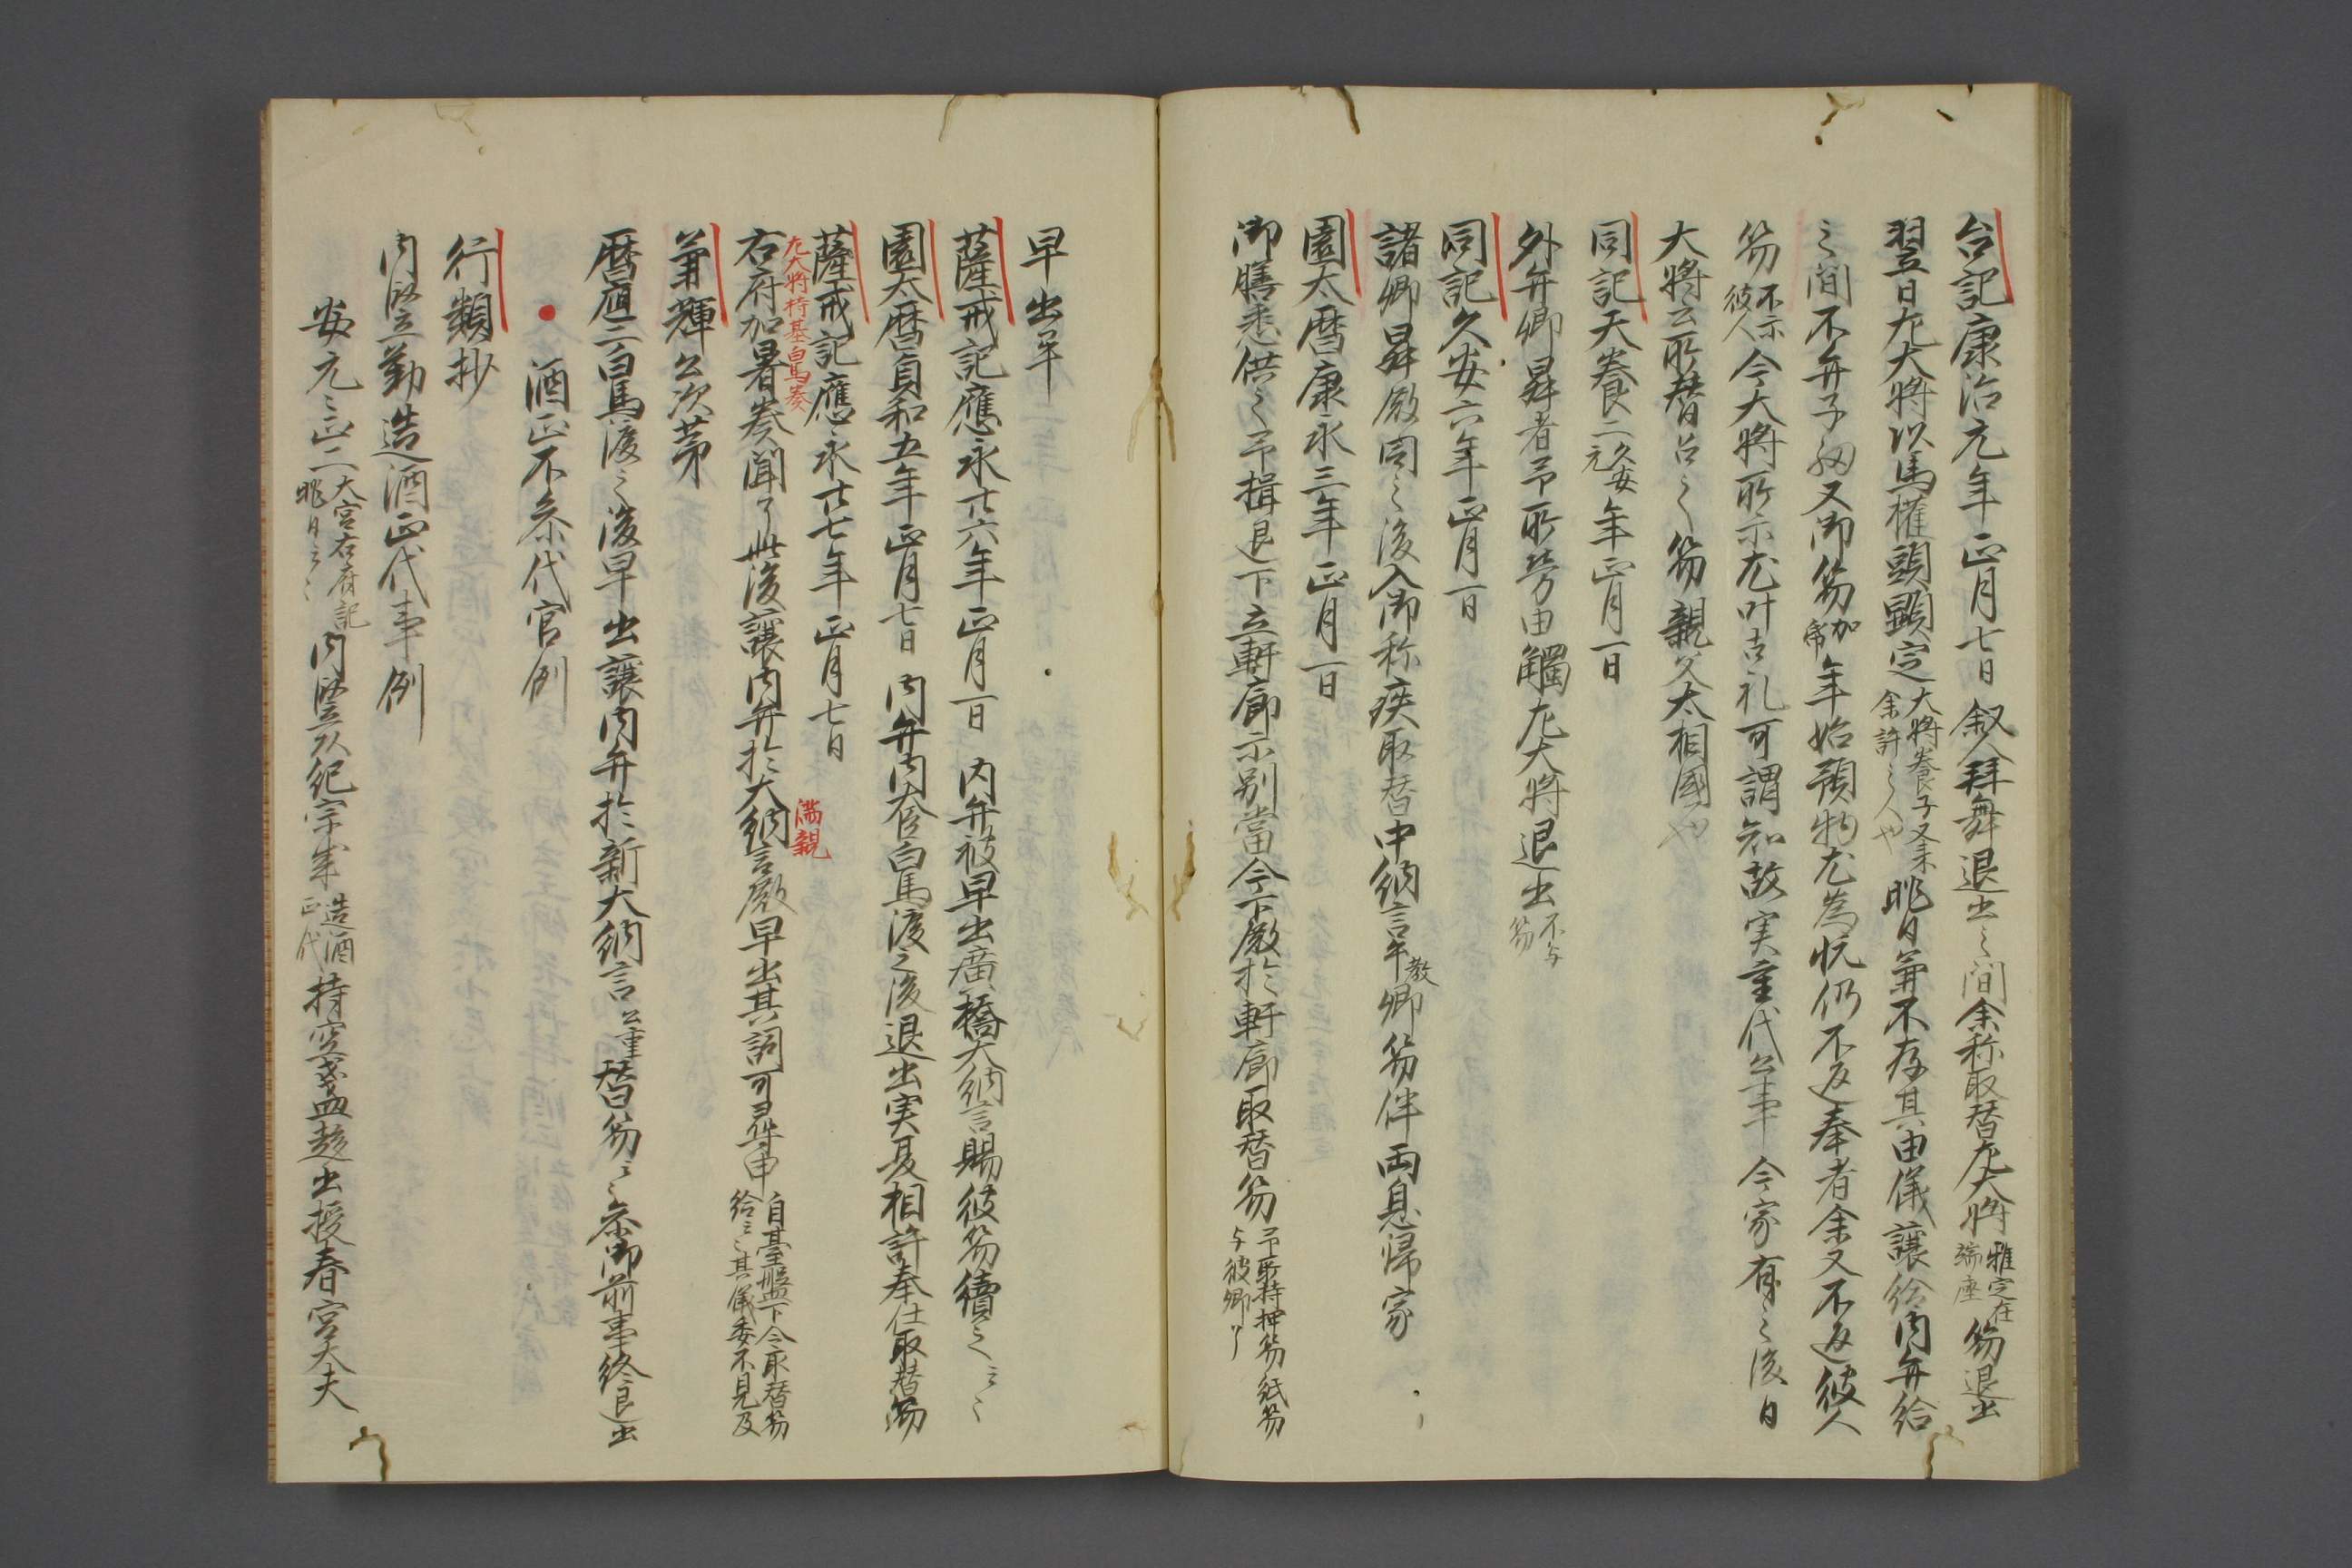 台記康治元年正月七日叙人拝舞退出之間余称取替左大将雅定在端座笏退出
翌日左大将以馬権頭顕定大将養子又来余許之人也昨日兼不存其由儀譲給内弁給
之間不弁子細又御笏加年始預物尤為恐仍不返奉者余又不返彼人
笏不示彼人今大将所示尤叶古礼可謂知故実重代公事今家有之後日
大将云所替召之笏親父太相國也
同記天養二久安元年正月一日
外弁卿昇者予所労由觸左大将退出不与笏
同記久安六年正月一日
諸卿昇殿周之後入御称疾取替中納言教卿笏伴両息帰家
園太暦康永三年正月一日
御膳悉供之予揖退下立軒廊示別當令下殿於軒廊取替笏予所持押笏紙笏与彼卿了
早出
薩戒記應永廿六年正月一日内弁被早出廣橋大納言賜彼笏續之云々
園太暦貞和五年正月七日内弁内府白馬渡之後退出実夏相許奉仕取替笏
薩戒記應永廿七年正月七日
左大将持基白馬奏
右府加署奏聞了此後譲内弁於大納言殿満親早出其詞可尋申自臺盤下令取替笏給云々其儀委不見及
兼輝公次第
暦應二白馬渡之後早出譲内弁於新大納言公重替笏云々参御前事終退出
酒正不参代官例
行類抄
内竪勤造酒正代事例
安元々正二大宮右府記昨日云々内竪頭紀宗業造酒正代持空盞趍出授春宮大夫